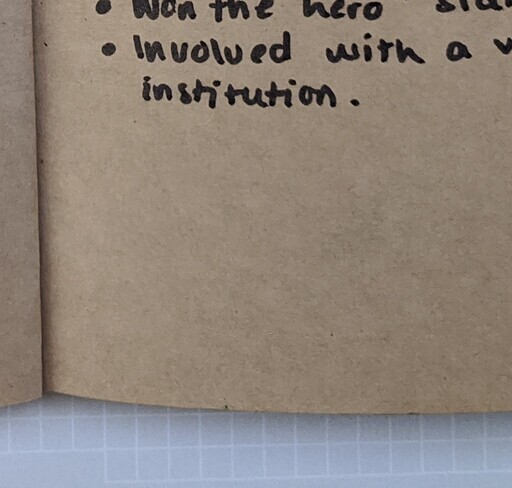 • Won the hero
• Involved with a
institution.